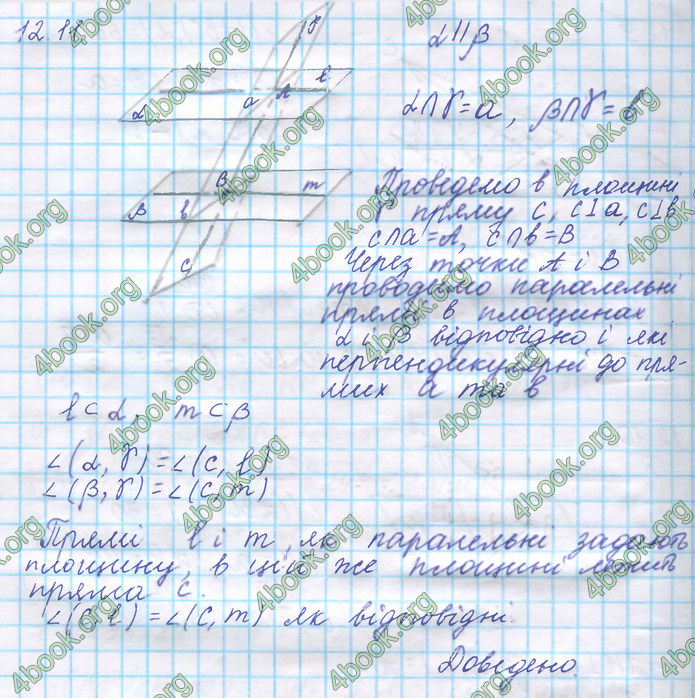 12.11
α∥β
α∩γ=a, β∩γ=b
Проведемо в площині
γ пряму c, c⊥a, c⊥b
c∩a=A, c∩b=B
Через точки A і B
проводимо паралельні
прямі в площинах
α і β відповідно і які
перпендикулярні до пря-
мих a та b
l⊂α, m⊂β
∠(α, γ)=∠(c, l)
∠(β, γ)=∠(c, m)
Прямі l і m, як паралельні задають
площину, в цій же площині лежить
пряма c.
∠(c, l)=∠(c, m) як відповідні.
Доведено.
γ
l
a
A
α
B
m
β
b
c
4book.org